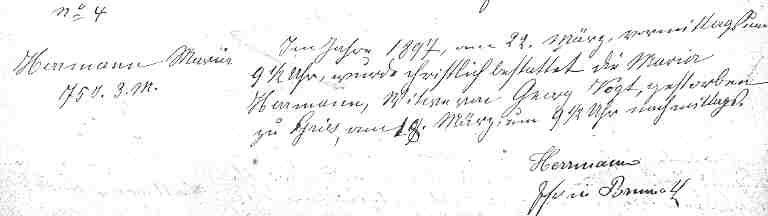 No 4
Herrmann Maria
75 J. 3. M.
Im Jahre 1897, am 22. März, vormittags um
9 ½ Uhr, wurde christlich bestattet die Maria
Herrmann, Witwe von Georg Vogt, gestorben
zu am 19. März, um 9 ½ Uhr nachmittags.
Herrmann